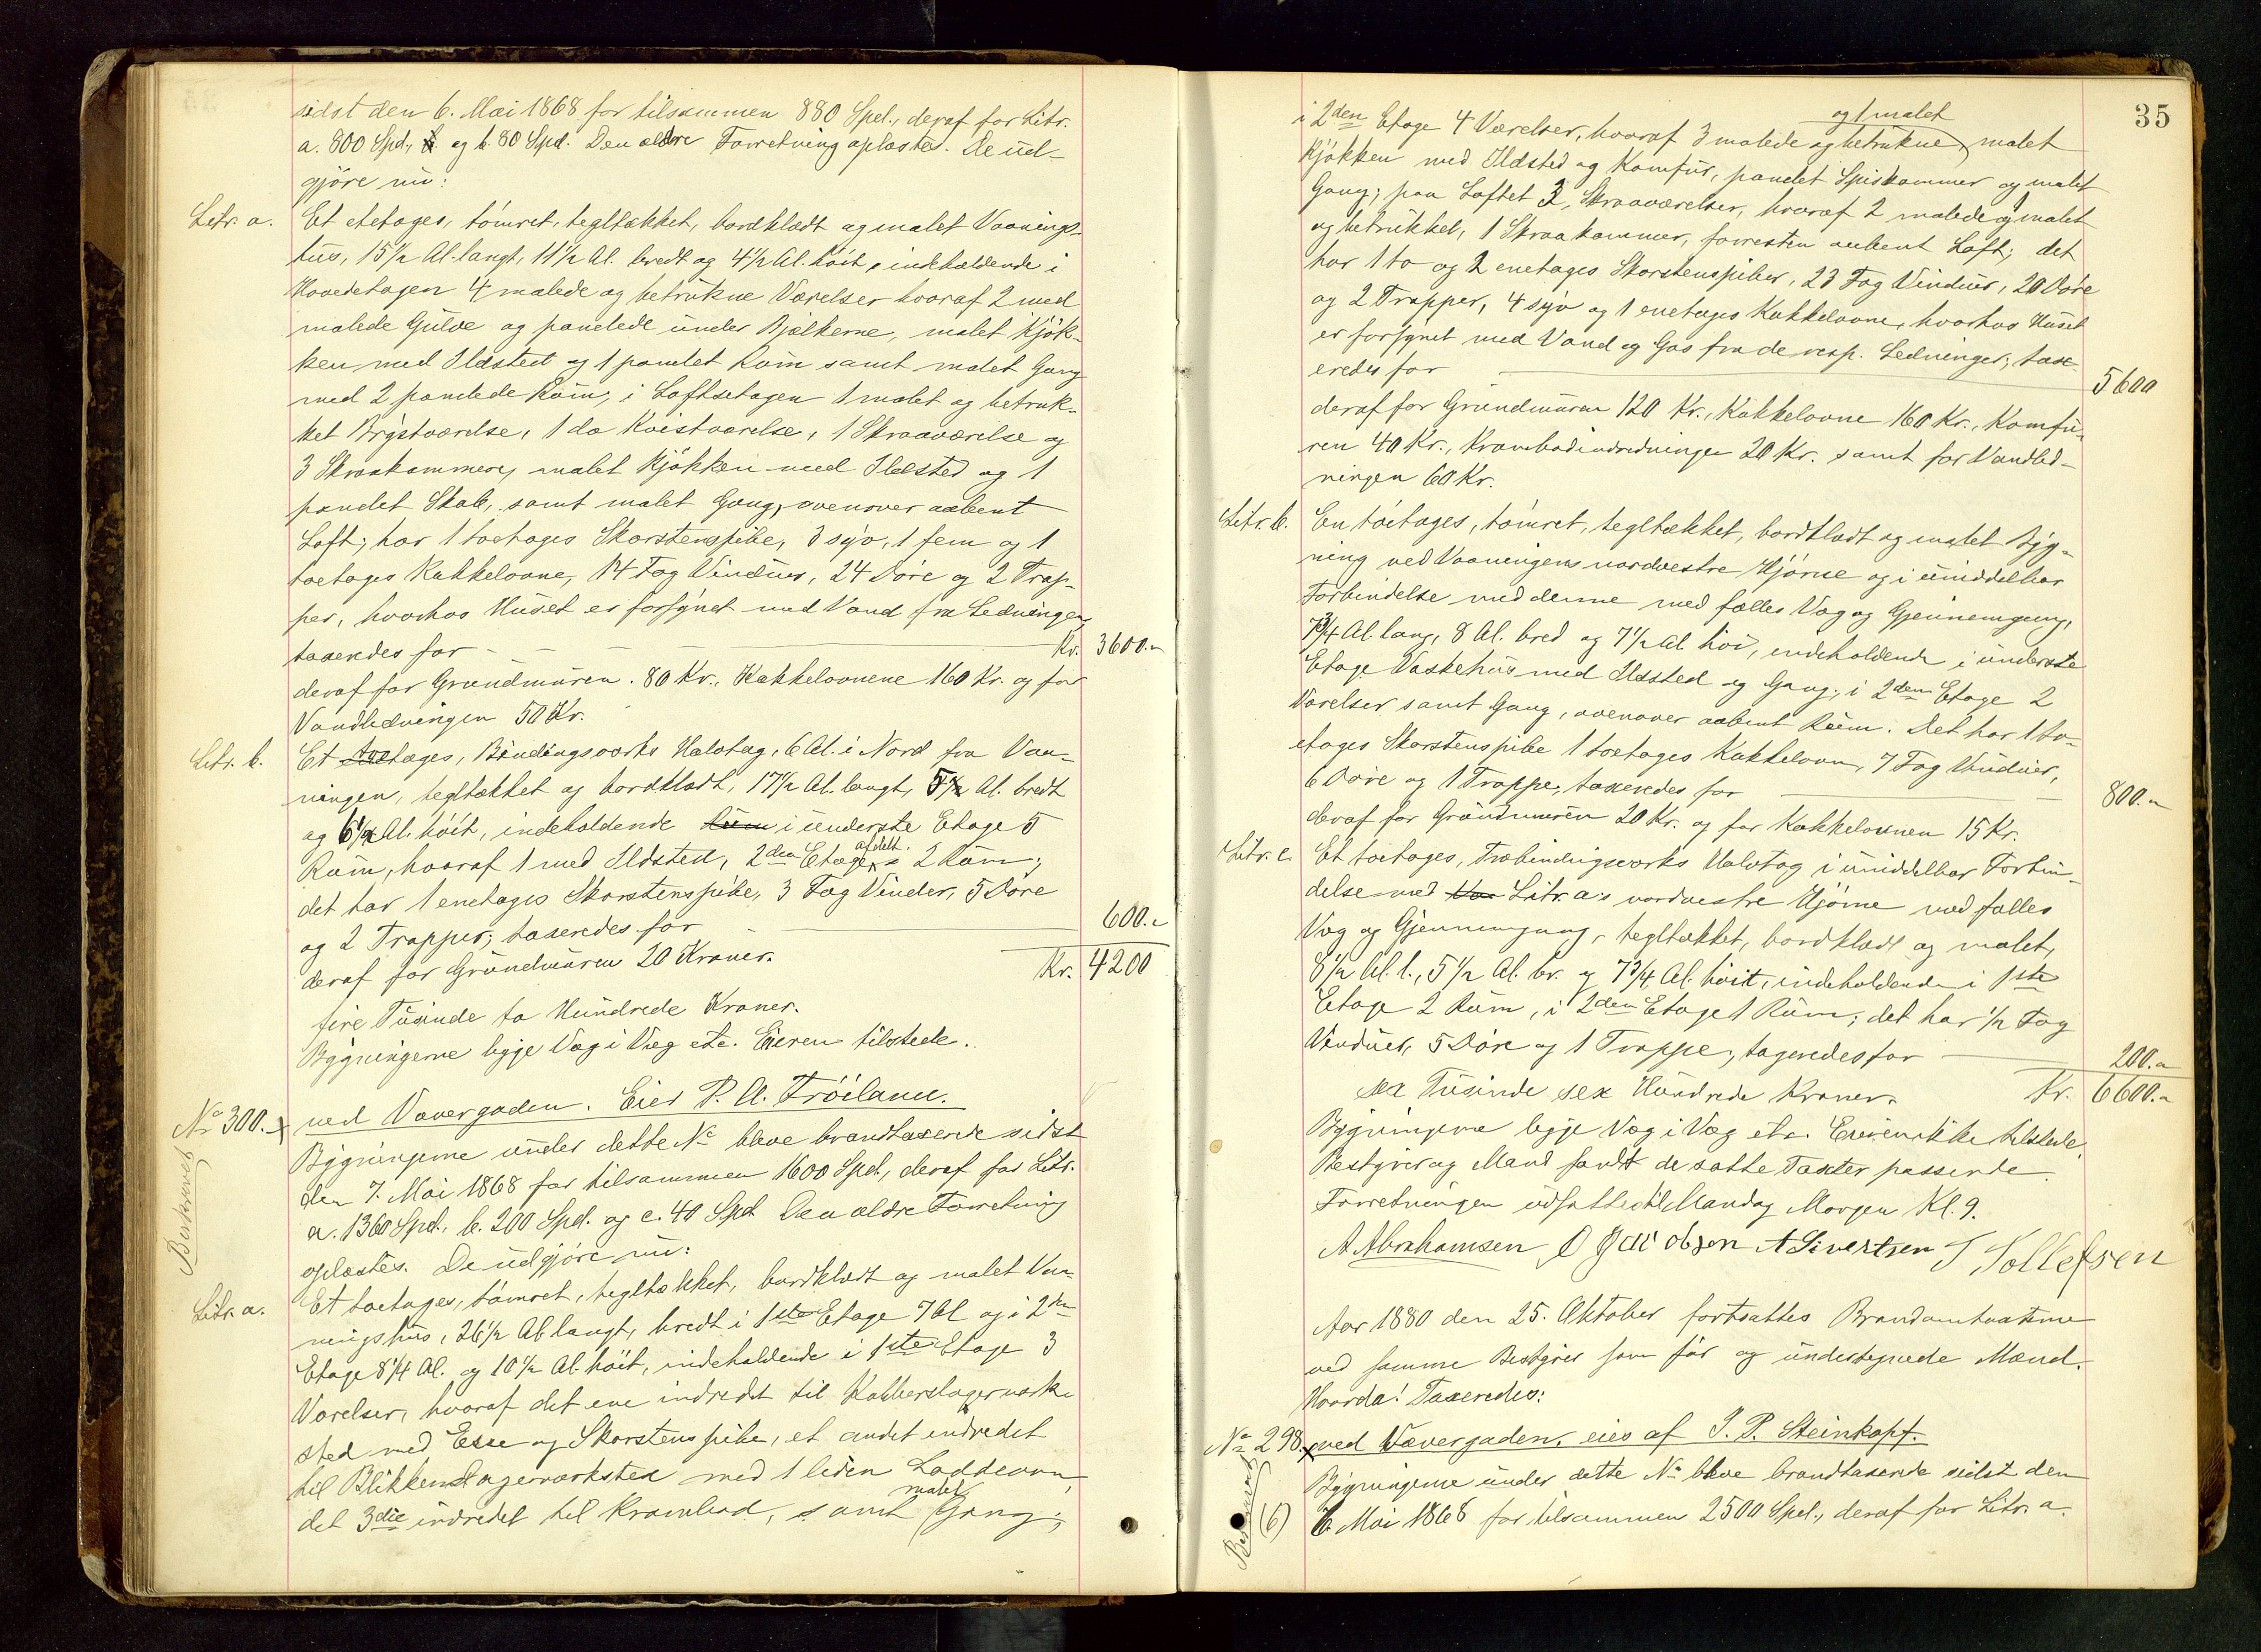 sidst den 6. Mai 1868 for tilsammen 880 Spd., deraf for Litr.
a. 800 Spd., og b. 80 Spd. Den ældre Forretning oplæstes. De ud-
gjöre nu:
Litr. a. Et etetages, tömret, tegltækket, bordklædt og malet Vaanings-
hus, 15 1/2 Al. langt, 11 1/2 Al. bredt og 4 1/2 Al. höit, indeholdende i
Hovedetagen 4 malede og betrukne Værelser hvoraf 2 med
malede Gulve og panelede under Bjælkerne, malet Kjök-
ken med Ildsted og 1 panelet Rum samt malet Gang
med 2 panelede Rum; i Loftsetagen 1 malet og betruk-
ket Brystværelse, 1 do Kvistværelse, 1 Skraaværelse og
3 Skraakammere, malet Kjökken med Ildsted og 1
panelet Skab, samt malet Gang, ovenover aabent
Loft; har 1 toetages Skorstenspibe, 3 syv, 1 fem og 1
toetages Kakkelovne, 14 Fag Vinduer, 24 Döre og 2 Trap-
per, hvorhos Huset er forsynet med Vand fra Ledningen,
taxeredes for - - - Kr. 3600.-
deraf for Grundmuren 80 Kr., Kakkelovnene 160 Kr. og for
Vandledningen 50 Kr.
Litr. b. Et toetages, Bindingsværks Halvtag, 6 Al. i Nord fra Vaa-
ningen, tegltækket og bordklædt, 17 1/2 Al. langt, 5 1/2 Al. bredt
og 6 1/2 Al. höit, indeholdende Rum i underste Etage 5
Rum, hvoraf 1 med Ildsted, 2den Etage afdelt i 2 Rum;
det har 1 enetages Skorstenspibe, 3 Fag Vinder, 5 Döre
og 2 Trapper; taxeredes for 600.-
deraf for Grundmuren 20 Kroner. Kr. 4200
fire Tusinde to Hundrede Kroner.
Bygningerne ligge Væg i Væg etc. Eieren tilstede.
No 300. ved Vævergaden. Eier P. A. Tröiland.
Bekræftet
Bygningerne under dette No bleve brandtaxerede sidst
den 7. Mai 1868 for tilsammen 1600 Spd., deraf for Litr.
a. 1360 Spd., b. 200 Spd. og c. 40 Spd. Den ældre Forretning
oplæstes. De udgjöre nu:
Litr. a. Et toetages, tömret, tegltækket, bordklædt og malet Vaa-
ningshus, 26 1/2 Al. langt, bredt i 1ste Etage 7 Al. og i 2den
Etage 8 1/4 Al. og 10 1/2 Al. höit, indeholdende i 1ste Etage 3
Værelser, hvoraf det ene indredet til Kobberslagerværk-
sted med Esse og Skorstenspibe, et andet indredet
til Blikkenslagerværksted med 1 liden Loddeovn,
det 3die indredet til Krambod, samt malet Gang;
35
i 2den Etage 4 Værelser, hvoraf 3 malede og betrukne og 1 malet, malet
Kjökken med Ildsted og Komfur, panelet Spiskammer og malet
Gang; paa Loftet 3 Skraaværelser, hvoraf 2 malede og 1 malet
og betrukket, 1 Skraakammer, forresten aabent Loft; det
har 1 to og 2 enetages Skorstenspiber, 23 Fag Vinduer, 20 Döre
og 2 Trapper, 4 syv og 1 enetages Kakkelovne, hvorhos Huset
er forsynet med Vand og Gas fra de resp. Ledninger; tax-
eredes for 5600
deraf for Grundmuren 120 Kr., Kakkelovne 160 Kr., Komfu-
ren 40 Kr., Krambodindredningen 20 Kr. samt for Vandled-
ningen 60 Kr.
Litr. b. En toetages, tömret, tegltækket, bordklædt og malet Byg-
ning ved Vaaningens nordvestre Hjörne og i umiddelbar
Forbindelse med denne med fælles Væg og Gjennemgang,
7 3/4 Al. lang, 8 Al. bred og 7 1/2 Al. höi, indeholdende i underste
Etage Vaskehus med Ildsted og Gang; i 2den Etage 2
Værelser samt Gang, ovenover aabent Rum. Det har 1 to-
etages Skorstenspibe 1 toetages Kakkelovn, 7 Fag Vinduer,
6 Döre og 1 Trappe; taxeredes for 800.-
deraf for Grundmuren 20 Kr. og for Kakkelovnen 15 Kr.
Litr. c. Et toetages, Træbindingsværks Halvtag i umiddelbar Forbin-
delse med Litr. a's nordvestre Hjörne med fælles
Væg og Gjennemgang, tegltækket, bordklædt og malet,
8 1/2 Al. l., 5 1/2 Al. br. og 7 3/4 Al. höit, indeholdende i 1ste
Etage 2 Rum, i 2den Etage 1 Rum; det har 1/2 Fag
Vinduer, 5 Döre og 1 Trappe; taxeredes for 200.-
sex Tusinde sex Hundrede Kroner. Kr. 6600.-
Bygningerne ligge Væg i Væg etc. Eieren ikke tilstede.
Bestyrer og Mænd fandt de satte Taxter passende.
Forretningen udsattes til Mandag Morgen Kl. 9.
A Abrahamsen O Jacobsen A Sivertsen T Tollefsen
Aar 1880 den 25. Oktober fortsattes Brandomtaxterne
ved samme Bestyrer som för og undertegnede Mænd.
Hvorda! Taxeredes:
No 298. ved Vævergaden, eies af J. P. Steinkopf.
Bekræftet
(6)
Bygningerne under dette No bleve brandtaxerede sidst den
6. Mai 1868 for tilsammen 2500 Spd., deraf for Litr. a.